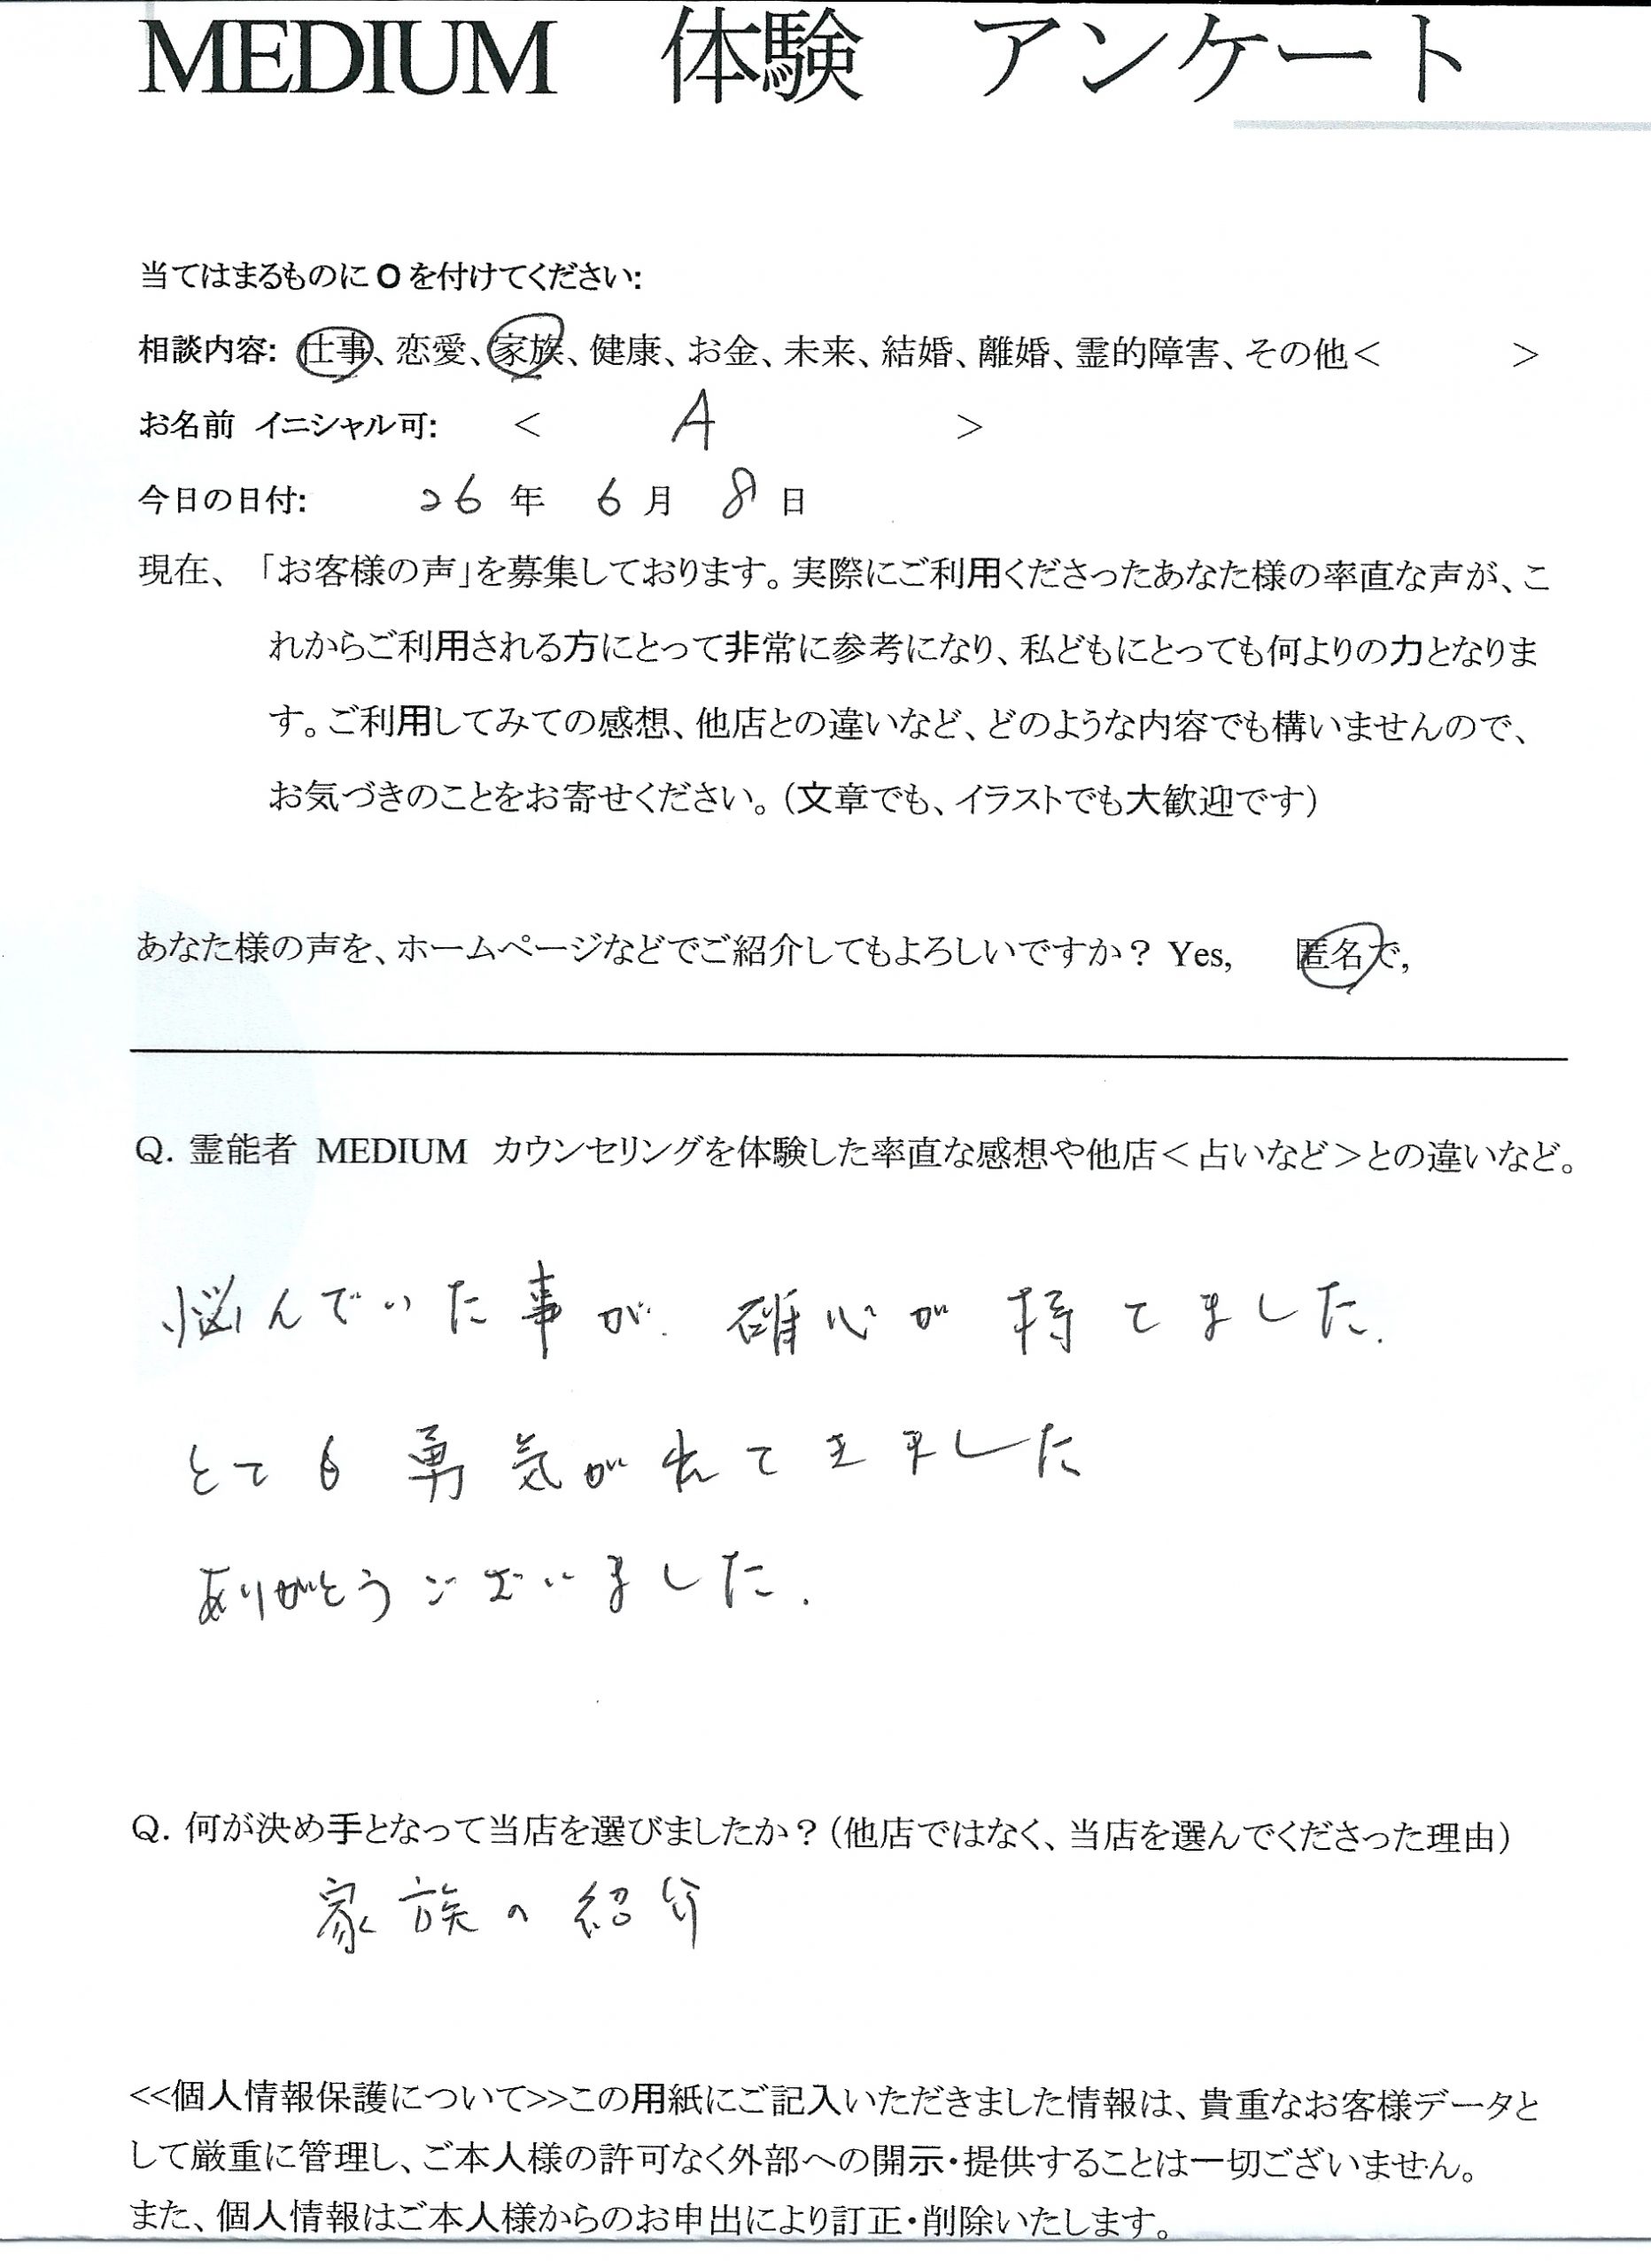 MEDIUM 体験 アンケート
当てはまるものに O を付けてください:
相談内容: 仕事、恋愛、家族、健康、お金、未来、結婚、離婚、霊的障害、その他< >
お名前 イニシャル可: < A >
今日の日付: 26 年 6 月 8 日
現在、「お客様の声」を募集しております。実際にご利用くださったあなた様の率直な声が、こ
れからご利用される方にとって非常に参考になり、私どもにとっても何よりの力となりま
す。ご利用してみての感想、他店との違いなど、どのような内容でも構いませんので、
お気づきのことをお寄せください。(文章でも、イラストでも大歓迎です)
あなた様の声を、ホームページなどでご紹介してもよろしいですか? Yes, 匿名で,
Q. 霊能者 MEDIUM カウンセリングを体験した率直な感想や他店<占いなど>との違いなど。
悩んでいた事が 確心が 持てました.
とても 勇気が てきました
ありがとうございました.
Q. 何が決め手となって当店を選びましたか?(他店ではなく、当店を選んでくださった理由)
家族の紹介
<<個人情報保護について>>この用紙にご記入いただきました情報は、貴重なお客様データと
して厳重に管理し、ご本人様の許可なく外部への開示・提供することは一切ございません。
また、個人情報はご本人様からのお申出により訂正・削除いたします。